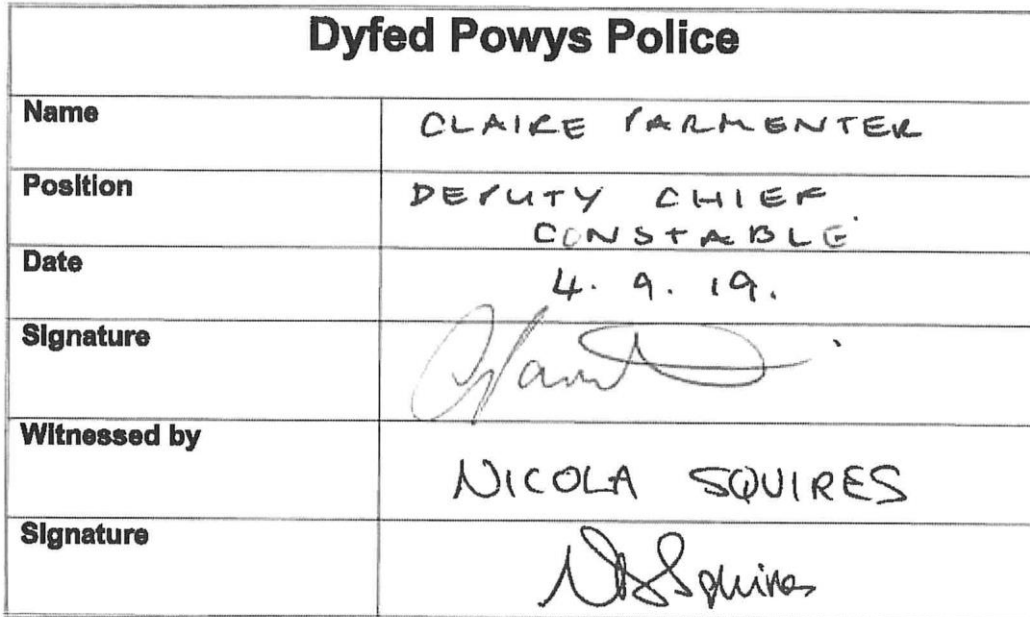 Dyfed Powys Police
Name
CLAIRE PARMENTER
Position
DEPUTY CHIEF
CONSTABLE
Date
4. 9. 19.
Signature
Witnessed by
NICOLA SQUIRES
Signature
NSquires